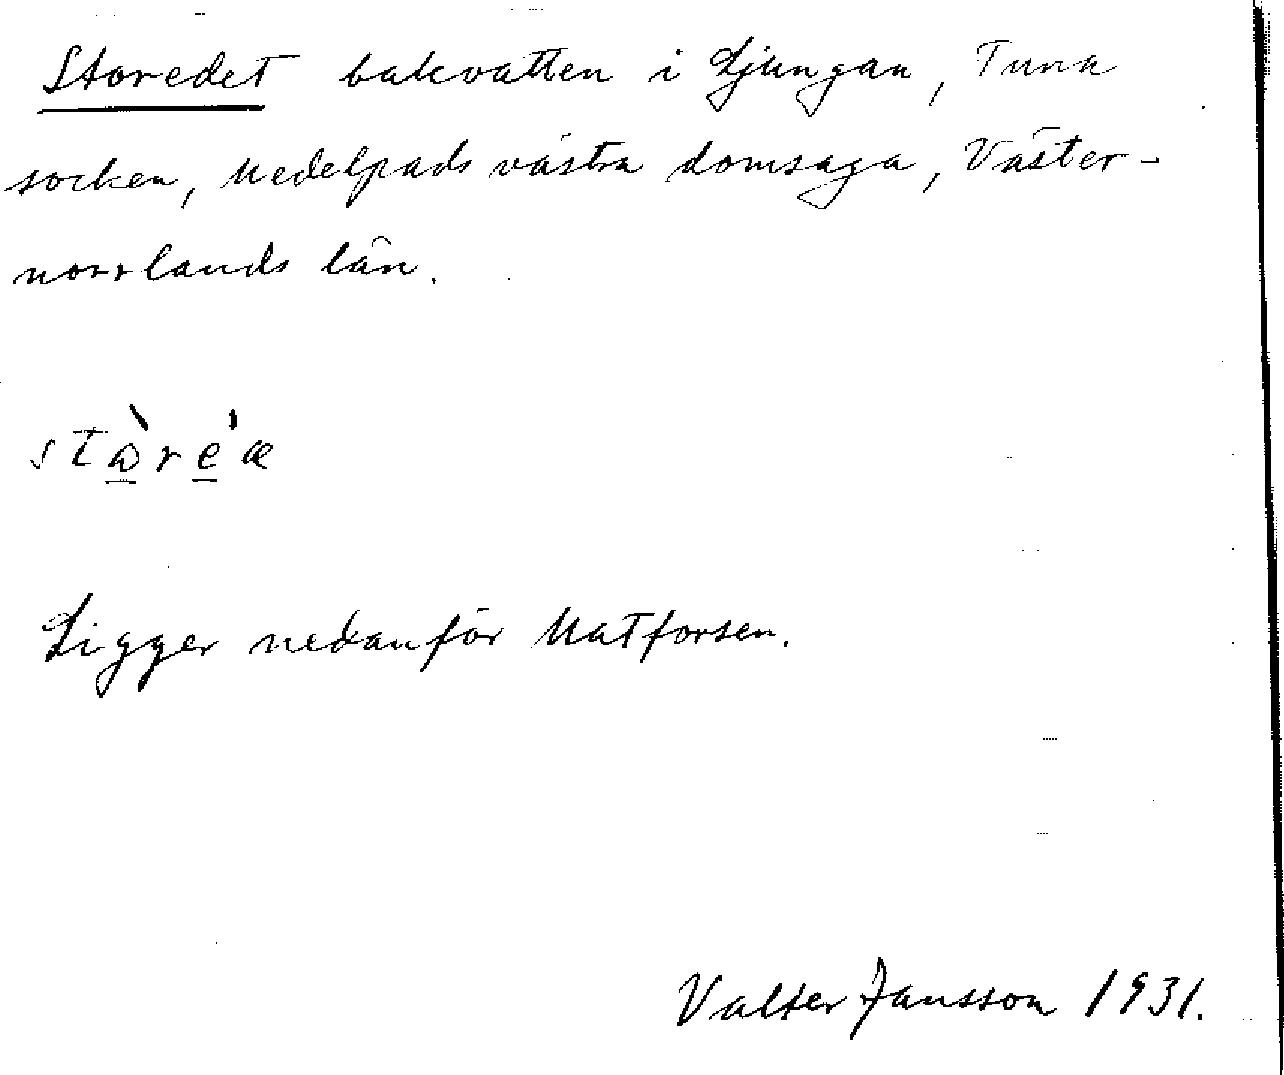 Storedet bakvatten i Ljungan, Tuna
socken, Medelpads västra domsaga, Väster-
norrlands län.
stò̲ré̲æ
Ligger nedanför Matforsen.
Valter Jansson 1931.